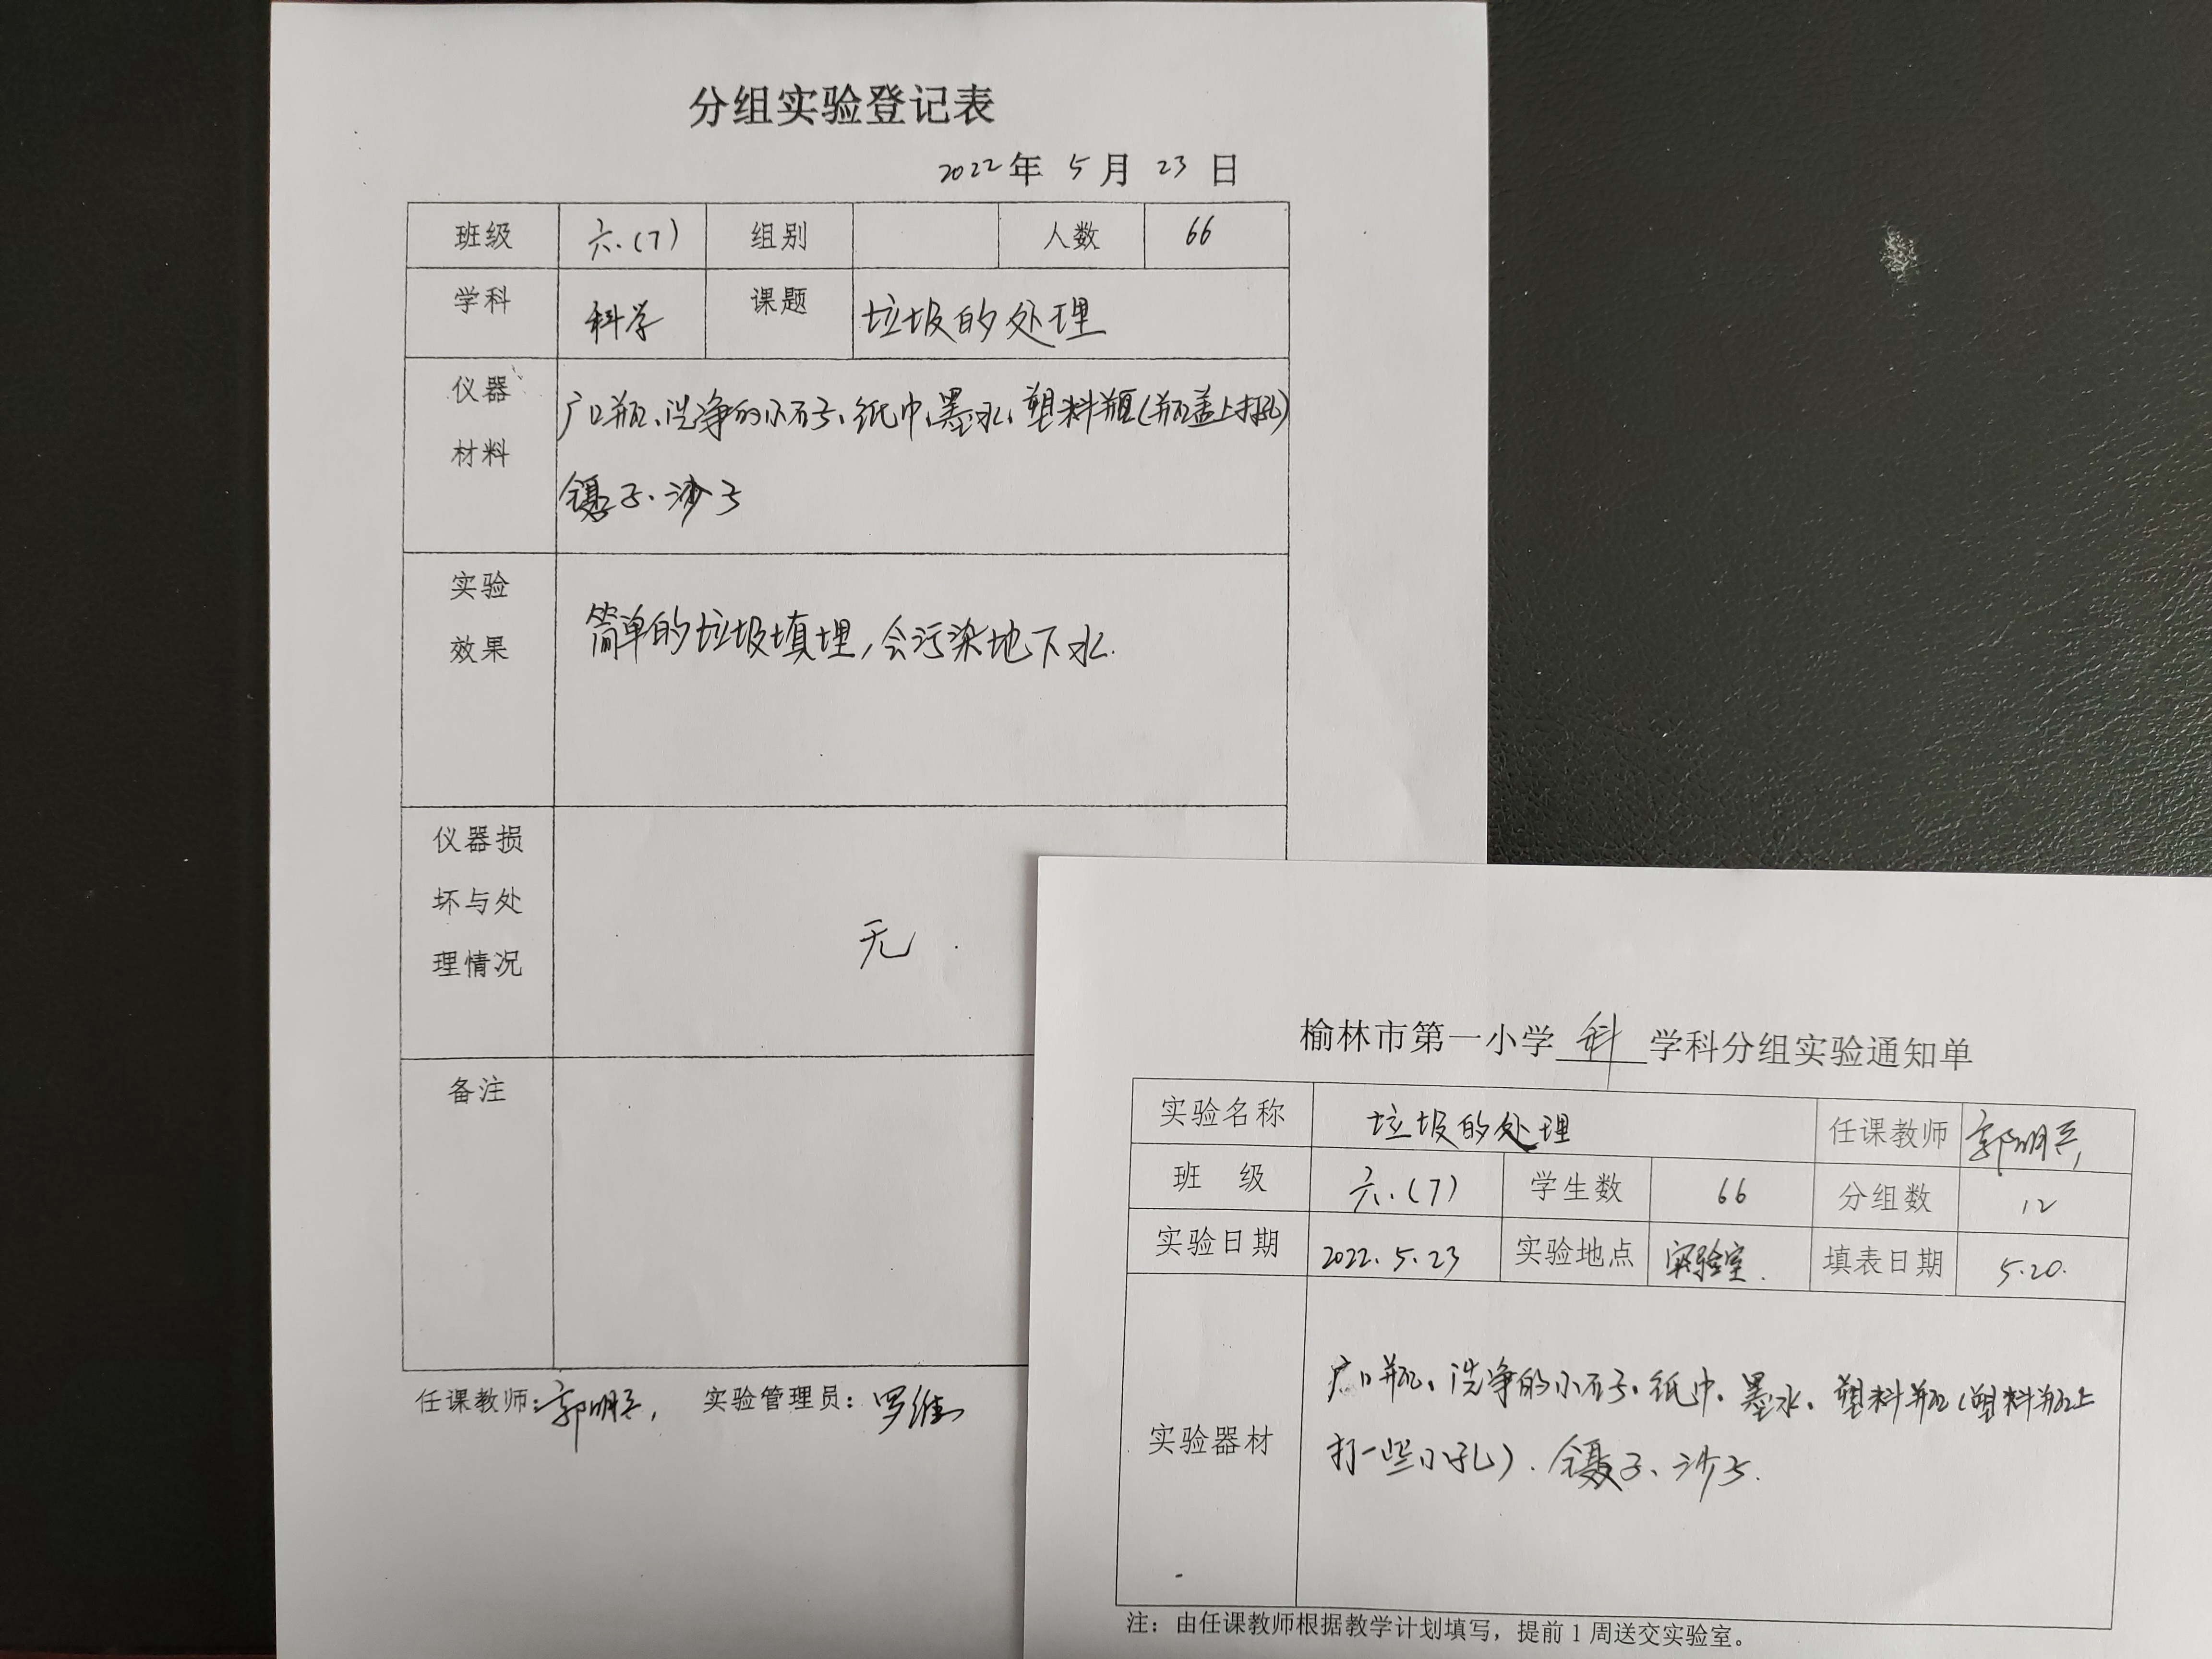 分组实验登记表
2022年 5月 23日
班级 六.(7) 组别 人数 66
学科 科学 课题 垃圾的处理
仪器材料 广口瓶、洗净的小石子、纸巾、墨水、塑料瓶(瓶盖上打孔)
镊子、沙子
实验效果 简单的垃圾填埋,会污染地下水.
仪器损坏与处理情况 无.
备注
任课教师:郭明兵, 实验管理员:罗维
榆林市第一小学 科 学科分组实验通知单
实验名称 垃圾的处理 任课教师 郭明兵,
班 级 六.(7) 学生数 66 分组数 12
实验日期 2022.5.23 实验地点 实验室. 填表日期 5.20.
实验器材 广口瓶、洗净的小石子、纸巾、墨水、塑料瓶(塑料瓶上
打一些小孔).镊子、沙子.
注：由任课教师根据教学计划填写，提前1周送交实验室。